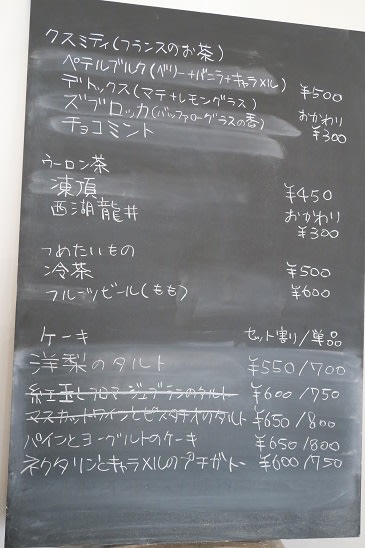 クスミティ(フランスのお茶)
ペテルブルク(ベリー+バニラ+キャラメル)
デトックス(マテ+レモングラス) ¥500
ズブロッカ(バッファローグラスの香) おかわり
チョコミント ¥300
ウーロン茶
凍頂 ¥450
西湖龍井 おかわり
¥300
つめたいもの
冷茶 ¥500
フルーツビール(もも) ¥600
ケーキ セット割り/単品
洋梨のタルト ¥550/700
紅玉とフロマージュブランのタルト ¥600/750
マスカットワインとピスタチオのタルト ¥650/800
パインとヨーグルトのケーキ ¥650/800
ネクタリンとキャラメルのプチガトー ¥600/750